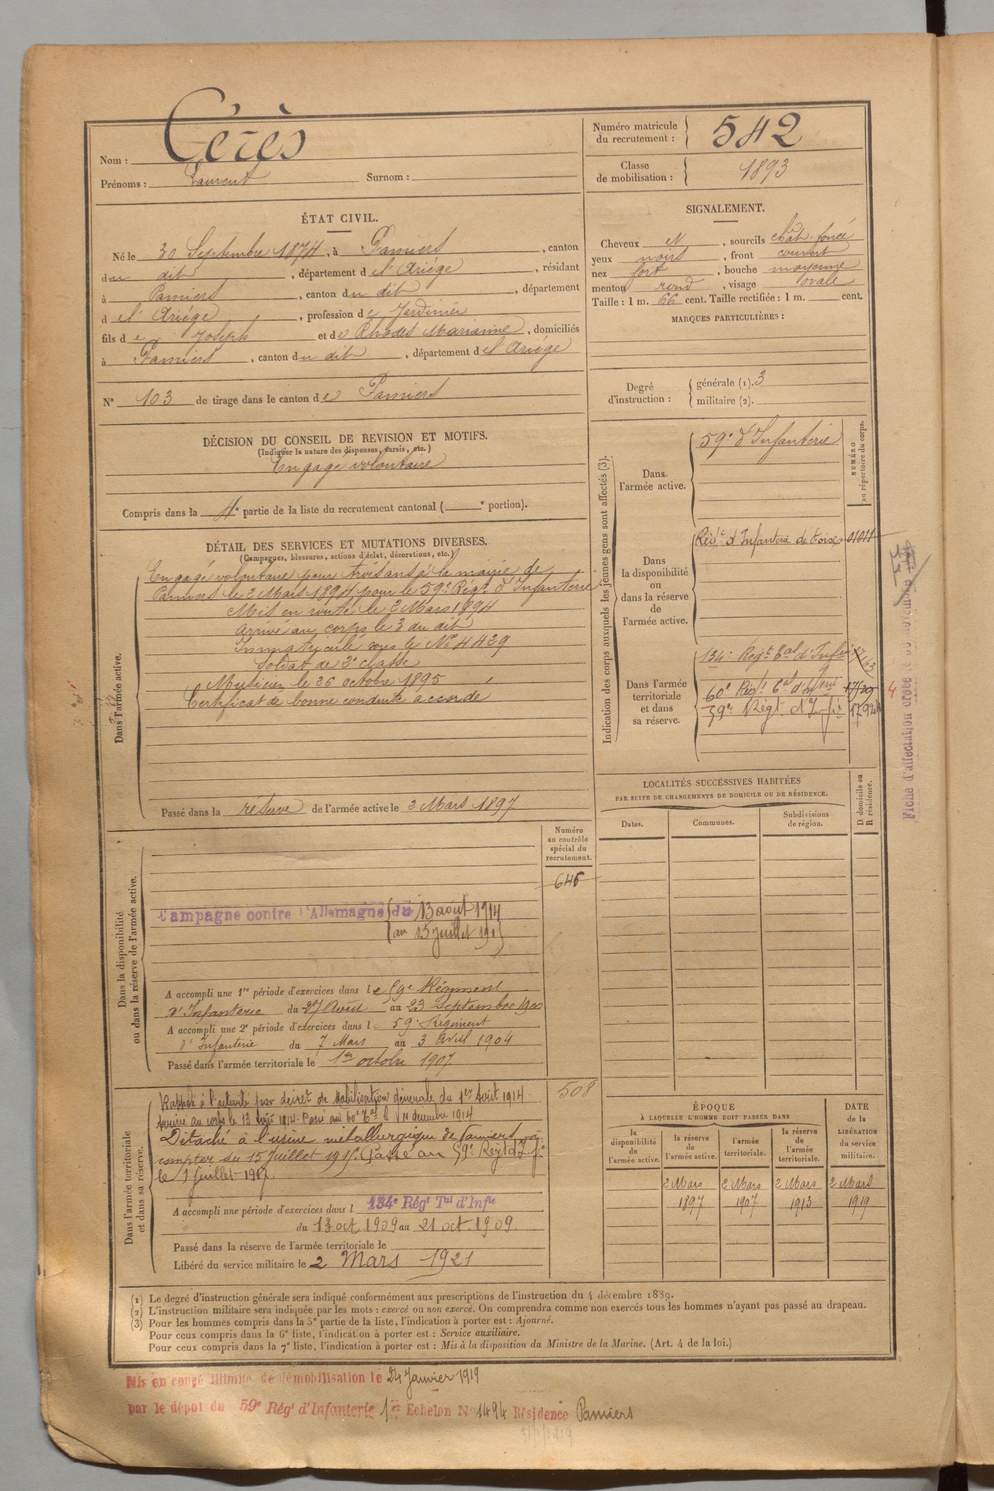 Nom : Cérès
Prénoms : Laurent Surnom :
Numéro matricule du recrutement : 542
Classe de mobilisation : 1893
ÉTAT CIVIL.
Né le 30 Septembre 1874, à Pamiers, canton
du dit, département de l'Ariège, résidant
à Pamiers, canton du dit, département
d l'Ariège, profession de Jardinier
fils de Joseph et de Rhodes Marianne, domiciliés
à Pamiers, canton du dit, département de l'Ariège
N° 103 de tirage dans le canton de Pamiers
SIGNALEMENT.
Cheveux et, sourcils chât. foncé
yeux noirs, front couvert
nez fort, bouche moyenne
menton rond, visage ovale
Taille : 1 m. 66 cent. Taille rectifiée : 1 m. cent.
MARQUES PARTICULIÈRES :
Degré d'instruction : générale (1). 3
militaire (2).
DÉCISION DU CONSEIL DE REVISION ET MOTIFS.
(Indiquer la nature des dispenses, sursis, etc.)
Engagé volontaire
Compris dans la 4e partie de la liste du recrutement cantonal ( e portion).
DÉTAIL DES SERVICES ET MUTATIONS DIVERSES.
(Campagnes, blessures, actions d'éclat, décorations, etc.)
Dans l'armée active.
Engagé volontaire pour trois ans à la mairie de
Pamiers le 2 Mars 1894 pour le 59e Régt d'Infanterie
Mis en route le 2 Mars 1894
Arrivé au corps le 3 du dit
Immatriculé sous le No 4429
Soldat de 2e classe
Musicien le 26 octobre 1895
Certificat de bonne conduite accordé
Passé dans la réserve de l'armée active le 2 Mars 1897
Indication des corps auxquels les jeunes gens sont affectés (3).
NUMÉRO au répertoire du corps.
Dans l'armée active.
59e d'Infanterie
Dans la disponibilité ou dans la réserve de l'armée active.
Régt d'Infanterie de Foix 01011
Dans l'armée territoriale et dans sa réserve.
134e Régt Tal d'Infie
60e Régt Tal d'Infie 17/29
59e Régt d'Infie
Fiche d'affectation
LOCALITÉS SUCCESSIVES HABITÉES
PAR SUITE DE CHANGEMENTS DE DOMICILE OU DE RÉSIDENCE.
Dates. Communes. Subdivisions de région. D domicile ou R résidence.
Dans la disponibilité ou dans la réserve de l'armée active.
Numéro au contrôle spécial du recrutement.
646
Campagne contre l'Allemagne du 13 août 1914
au 15 juillet
A accompli une 1re période d'exercices dans le 59e Régiment
d'Infanterie du 27 Août au 23 Septembre 1900
A accompli une 2e période d'exercices dans l 59e Régiment
d'Infanterie du 7 Mars au 3 Avril 1904
Passé dans l'armée territoriale le 1er octobre 1907
Dans l'armée territoriale et dans sa réserve.
508
Rappelé à l'activité par décret de Mobilisation Générale du 1er Août 1914
Arrivé au corps le 13 Août 1914. Passé au 60e Tal le 11 décembre 1914
Détaché à l'usine métallurgique de Pamiers
compter du 15 Juillet Passé au 59e Régt d'Ife
le 1 Juillet 1917.
A accompli une période d'exercices dans l 134e Régt Tal d'Infie
du 13 oct 1909 au 21 oct. 1909
Passé dans la réserve de l'armée territoriale le
Libéré du service militaire le 2 Mars 1921
ÉPOQUE
À LAQUELLE L'HOMME DOIT PASSER DANS
la disponibilité de l'armée active. la réserve de l'armée active. l'armée territoriale. la réserve de l'armée territoriale.
DATE de la LIBÉRATION du service militaire.
2 Mars 2 Mars 2 Mars 2 Mars
1897 1907 1913 1919
(1) Le degré d'instruction générale sera indiqué conformément aux prescriptions de l'instruction du 4 décembre 1889.
(2) L'instruction militaire sera indiquée par les mots : exercé ou non exercé. On comprendra comme non exercés tous les hommes n'ayant pas passé au drapeau.
(3) Pour les hommes compris dans la 5e partie de la liste, l'indication à porter est : Ajourné.
Pour ceux compris dans la 6e liste, l'indication à porter est : Service auxiliaire.
Pour ceux compris dans la 7e liste, l'indication à porter est : Mis à la disposition du Ministre de la Marine. (Art. 4 de la loi.)
Mis en congé illimité de démobilisation le 24 Janvier 1919
par le dépôt du 59e Régt d'Infanterie 1er Echelon No 1494 Résidence Pamiers